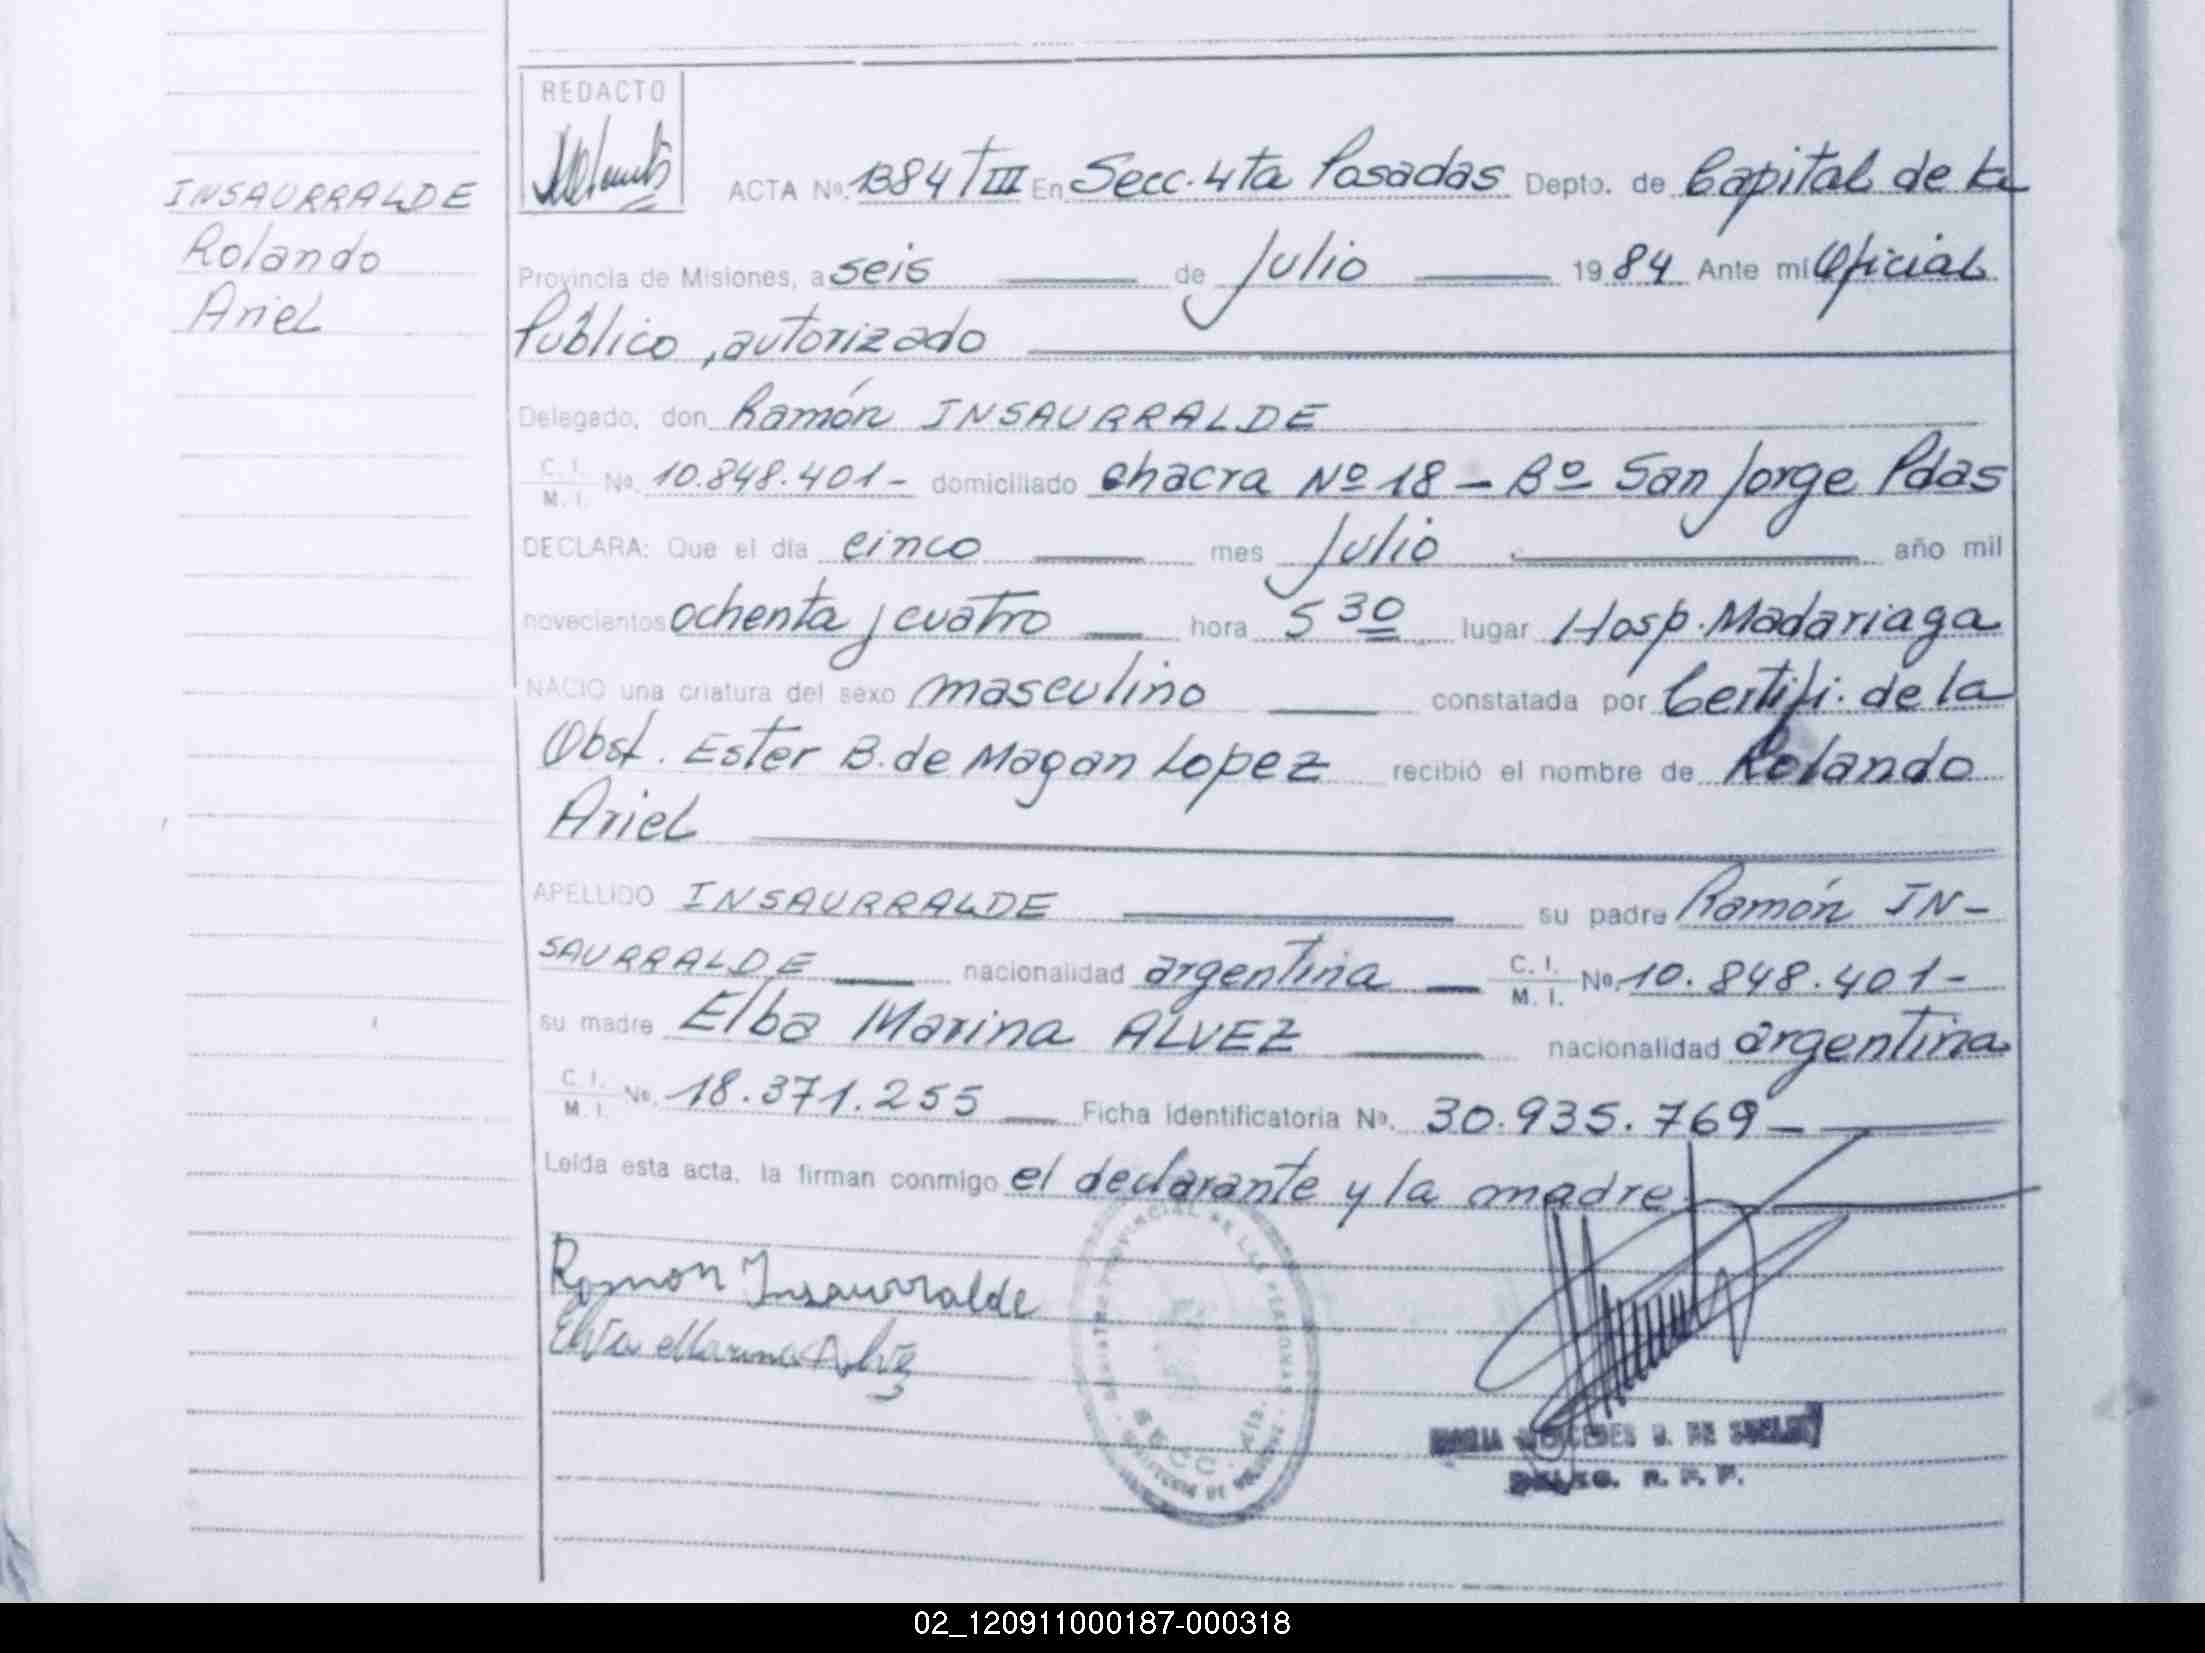 REDACTO
INSAURRALDE
Rolando
Ariel
ACTA Nº. 1384 T III En Secc. 4ta Posadas Depto. de Capital de la
Provincia de Misiones, a seis de Julio 1984 Ante mí Oficial
Público, autorizado
Delegado, don Ramón INSAURRALDE
C. I. M. I. Nº. 10.848.401- domiciliado chacra Nº 18 - Bº San Jorge Pdas
DECLARA: Que el día cinco mes Julio año mil
novecientos ochenta y cuatro hora 5 30 lugar Hosp. Madariaga
NACIO una criatura del sexo masculino constatada por Certifi. de la
Obst. Ester B. de Magan Lopez recibió el nombre de Rolando
Ariel
APELLIDO INSAURRALDE su padre Ramón IN-
SAURRALDE nacionalidad argentina C. I. M. I. Nº. 10.848.401-
su madre Elba Marina ALVEZ nacionalidad argentina
C. I. M. I. Nº. 18.371.255 Ficha identificatoria Nº. 30.935.769-
Leída esta acta, la firman conmigo el declarante y la madre
Ramon Insaurralde
Marina
DE LAS PERSONAS
SECC. 4ta.
DE
DELEG. R. P. P.
02_120911000187-000318